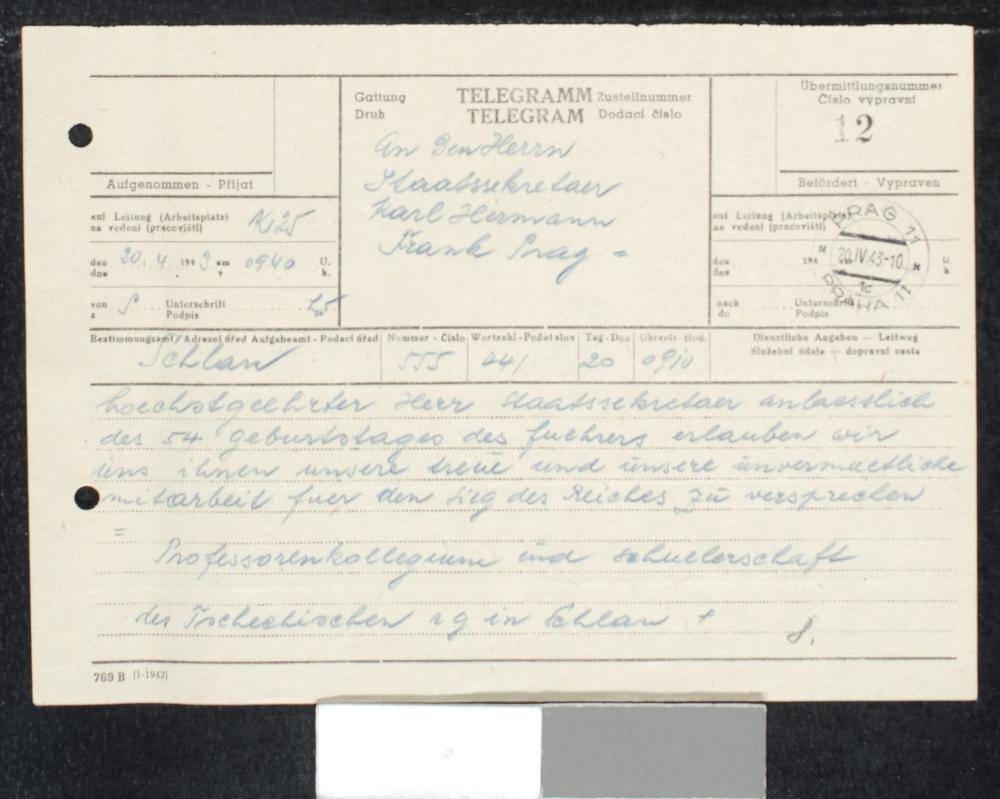 Gattung TELEGRAMM Zustellnummer
Druh TELEGRAM Dodací číslo
Übermittlungsnummer
Číslo výpravní
12
An Den Herrn
Staatssekretaer
Karl Hermann
Frank Prag =
Aufgenommen - Přijat
Befördert - Vypraven
auf Leitung (Arbeitsplatz)
na vedení (pracoviští)
den 20. 4. 1943 um 0940 U.
dne v h.
von S Unterschrift
z Podpis
auf Leitung (Arbeitsplatz)
na vedení (pracoviští)
den 194 U.
dne h.
nach Unterschrift
do Podpis
PRAG 11
20.IV.43-10
1c
PRAHA 11
Bestimmungsamt/Adresní úřad Aufgabeamt - Podací úřad Nummer - Číslo Wortzahl - Počet slov Tag - Den Uhrzeit - Hod. Dienstliche Angaben — Leitweg
Služební údaje — dopravní cesta
Schlan 555 44/ 20 0910
hoechstgeehrter Herr Staatssekretaer anlaesslich
des 54 geburtstages des fuehrers erlauben wir
uns ihnen unsere treue und unsere unvermuetliche
mitarbeit fuer den Sieg des Reiches zu versprechen
=
Professorenkollegium und schuelerschaft
der Tschechischen r g in Schlan +
769 B (I-1942)